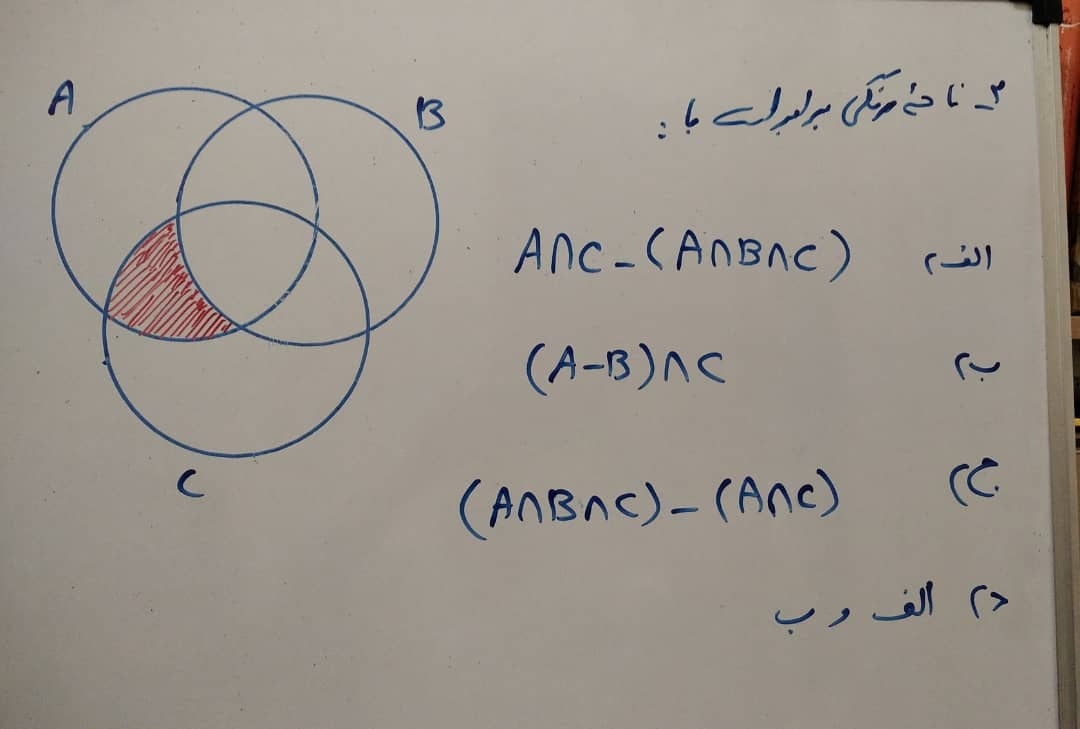 A
B
C
۳_ ناحیهٔ رنگی برابر است با :
الف) A∩C-(A∩B∩C)
ب) (A-B)∩C
ج) (A∩B∩C)-(A∩C)
د) الف و ب